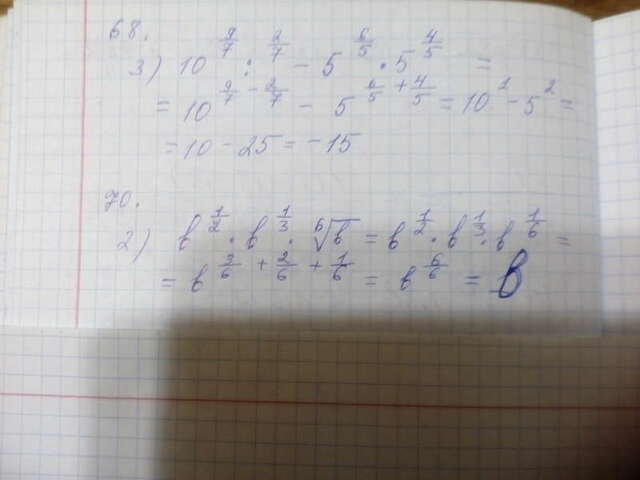 68.
3) 10^(9/7) : ^(2/7) - 5^(6/5) · 5^(4/5) =
= 10^(9/7 - 2/7) - 5^(6/5 + 4/5) = 10^1 - 5^2 =
= 10 - 25 = -15
70.
2) b^(1/2) · b^(1/3) · ⁶√b = b^(1/2) · b^(1/3) · b^(1/6) =
= b^(3/6 + 2/6 + 1/6) = b^(6/6) = b